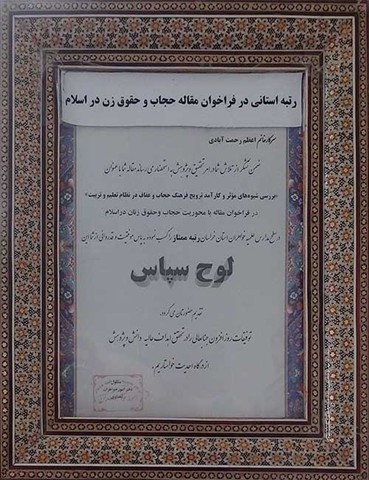 رتبه استانی در فراخوان مقاله حجاب و حقوق زن در اسلام
سرکار خانم اعظم رحمت آبادی
ضمن تشکر از تلاش شما در امر تحقیق و پژوهش به استحضار می رساند مقاله شما با عنوان
«بررسی شیوه‌های مؤثر و کارآمد ترویج فرهنگ حجاب و عفاف در نظام تعلیم و تربیت»
در فراخوان مقاله با محوریت حجاب و حقوق زنان در اسلام
در سطح مدارس علمیه خواهران استان خراسان رتبه ممتاز را کسب نموده به پاس موفقیت و قدردانی از شما این
لوح سپاس
تقدیم حضورتان می گردد.
توفیقات روز افزون جنابعالی را در تحقق اهداف عالیه دانش و پژوهش
از درگاه احدیت خواستاریم.